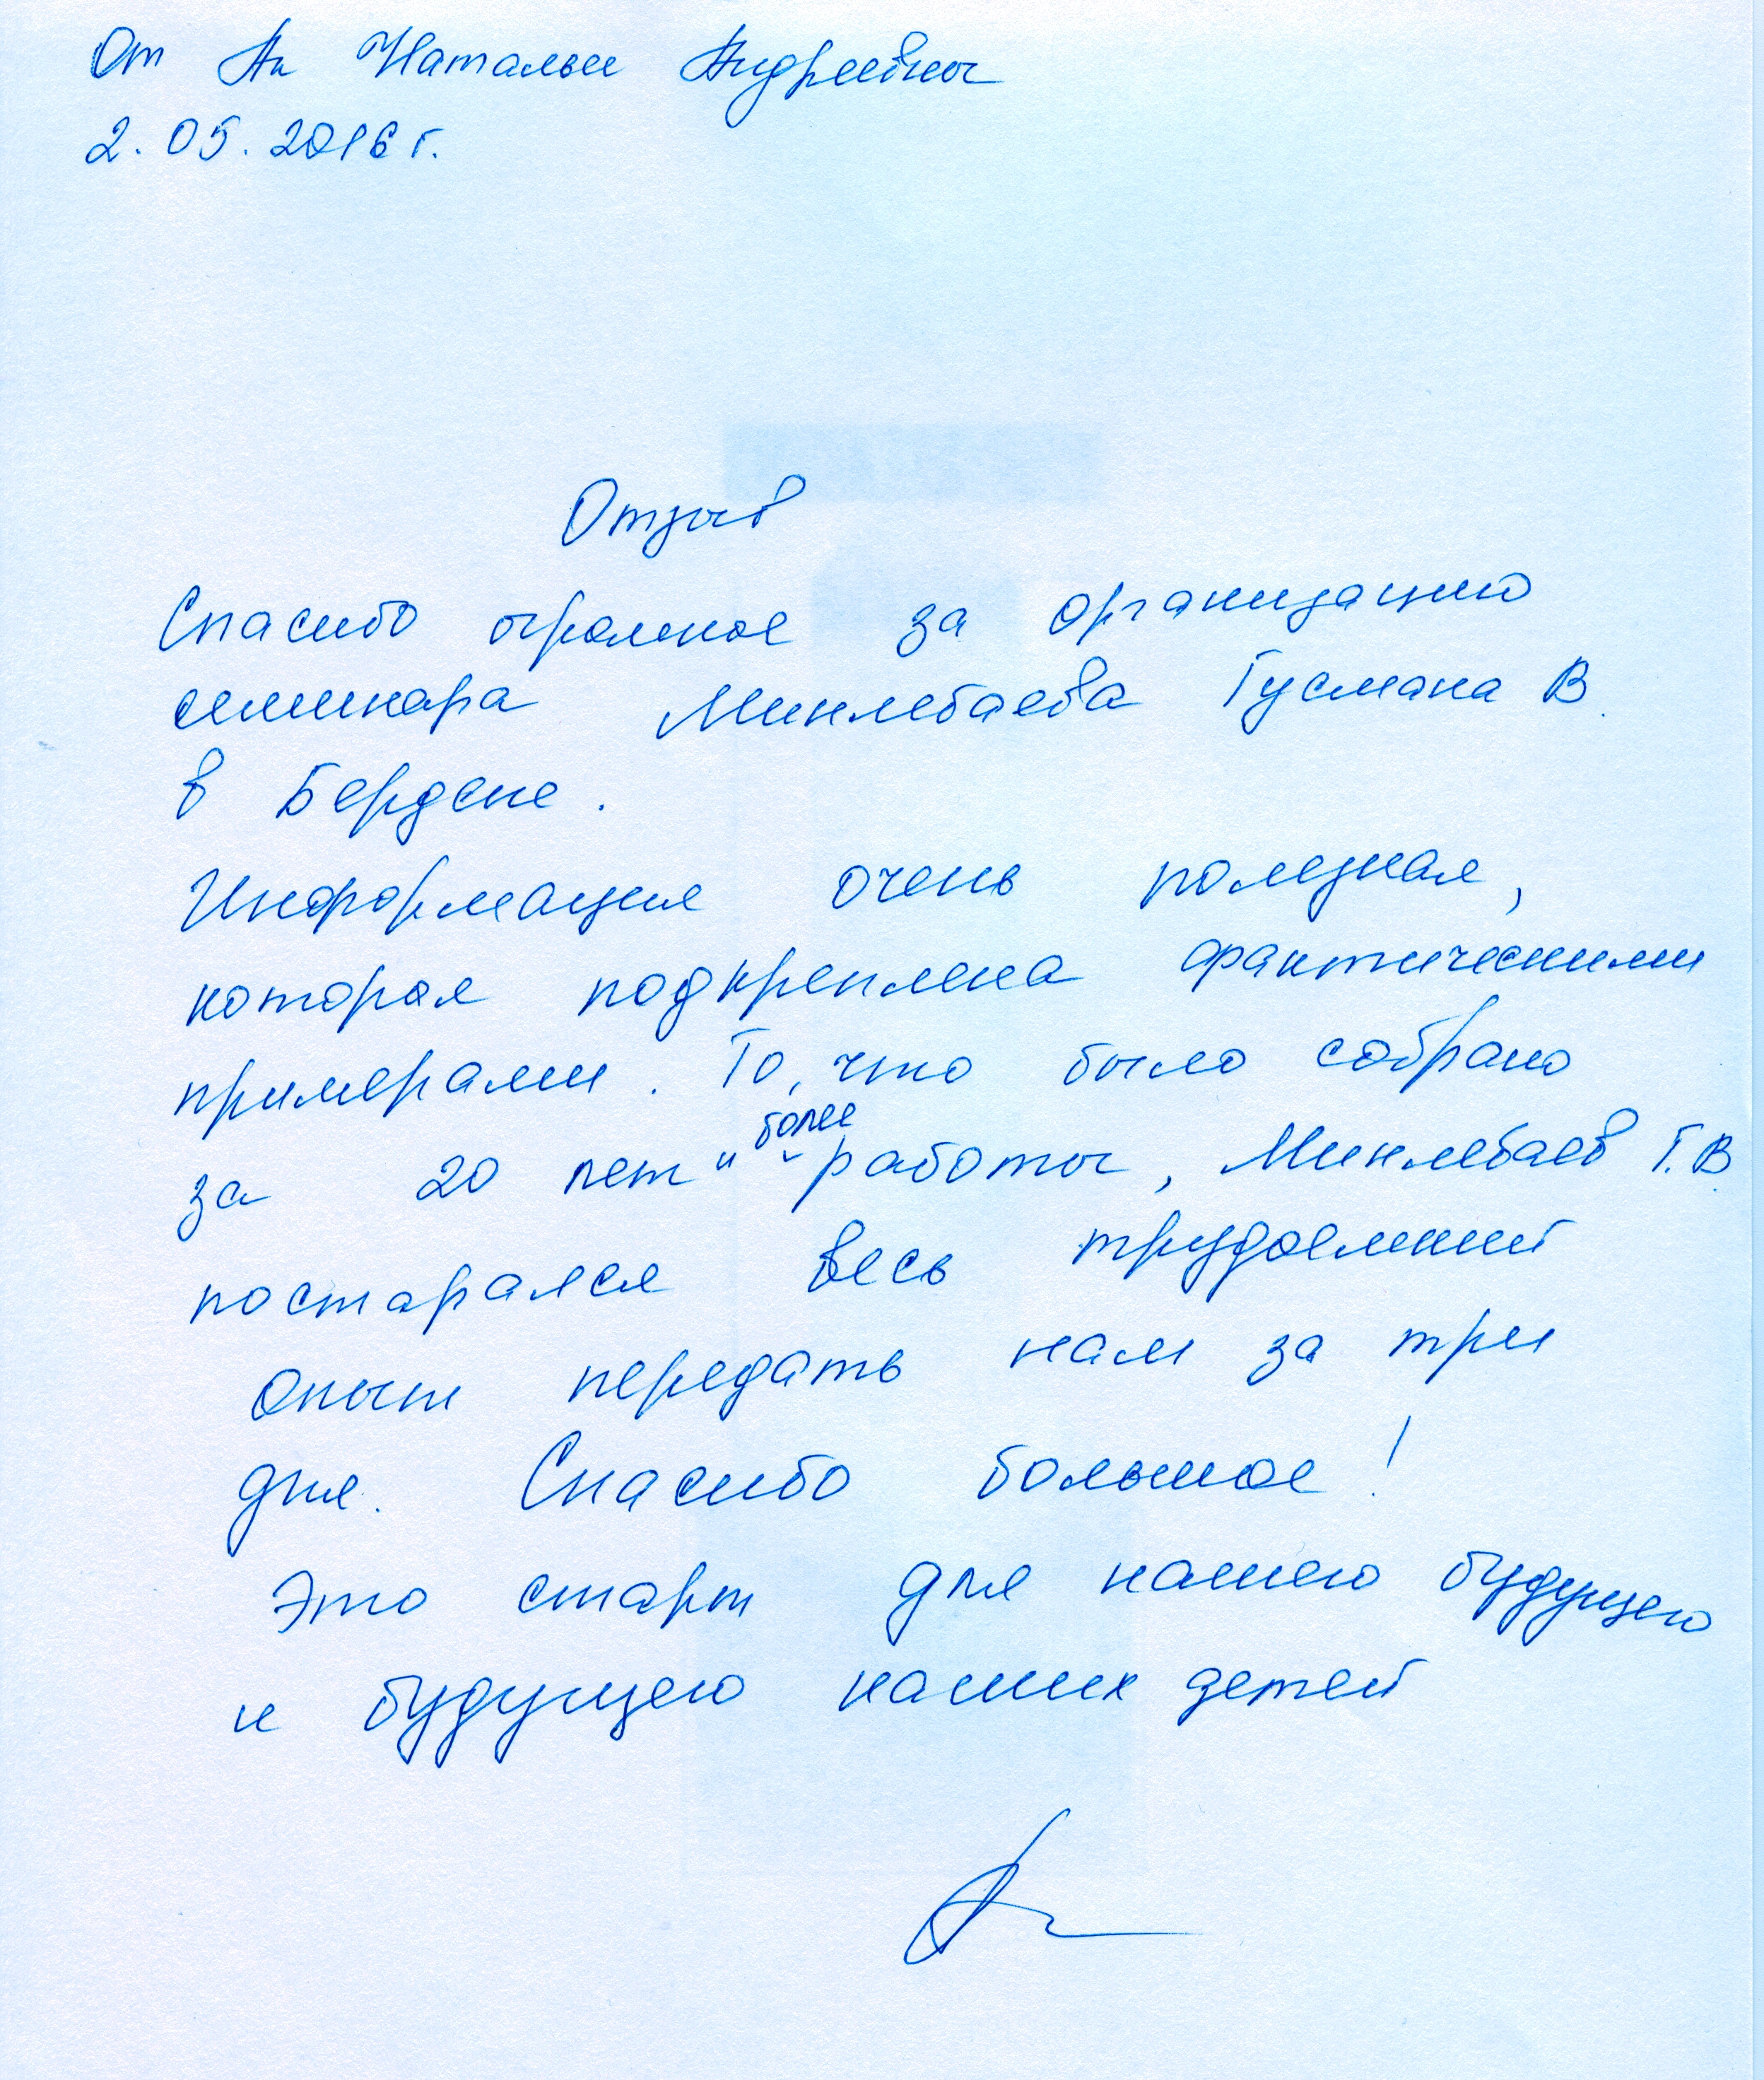 От Ан Натальи Андреевны
2.05.2016 г.
Отзыв
Спасибо огромное за организацию
семинара Минлебаева Гусмана В.
в Бердске.
Информация очень полезная,
которая подкреплена фактическими
примерами. То, что было собрано
более
за 20 лет и работы, Минлебаев Г.В.
постарался весь трудоемкий
опыт передать нам за три
дня. Спасибо большое!
Это старт для нашего будущего
и будущего наших детей